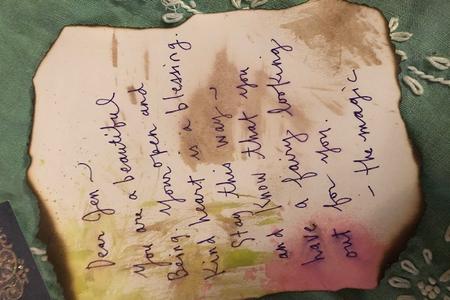 Dear Jen ~
you are a beautiful
Being. Your open and
Kind heart is a blessing.
Stay this way ~
and know that you
have a fairy looking
out for you.
- the magic